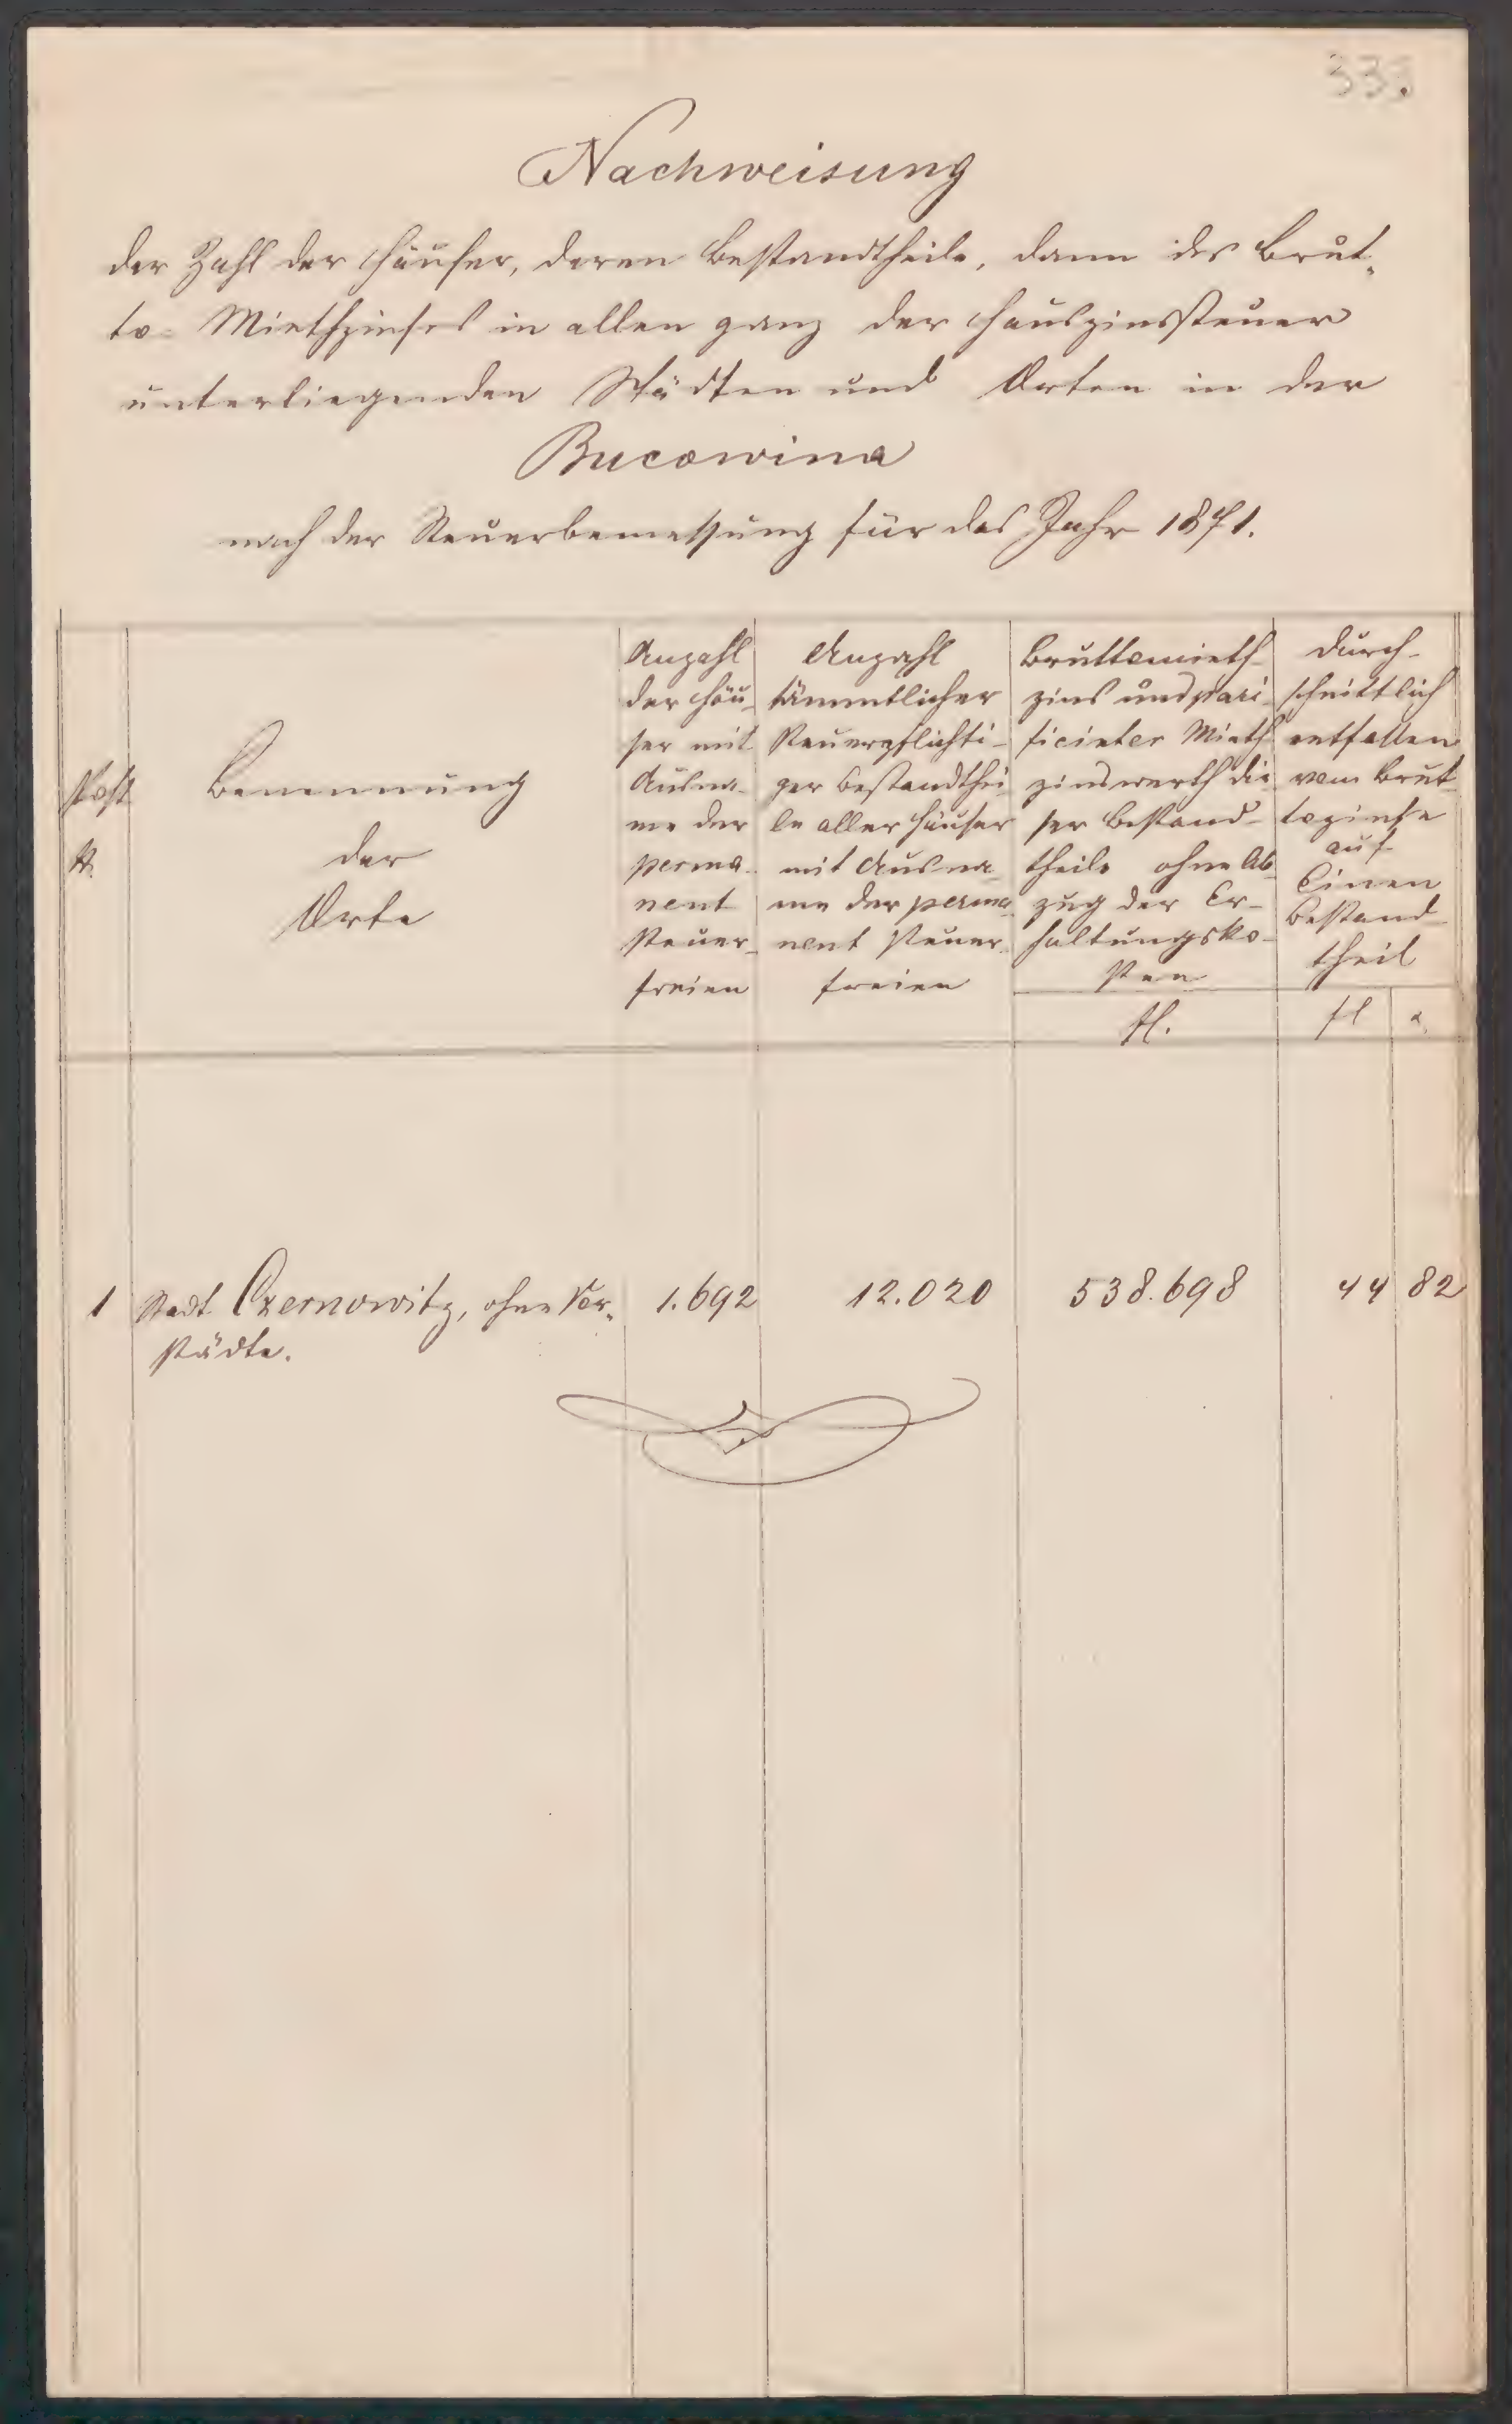 333.
Nachweisung
der Zahl der Häuser, deren Bestandtheile, dann des Brut„
to-Miethzinses in allen ganz der Hauszinssteuer
unterliegenden Städten und Orten in der
Bucowina
nach der Steuerbemessung für das Jahr 1871.
Post
N.
Benennung
der
Orte
Anzahl
der Häu-
ser mit
Ausna-
me der
perma-
nent
steuer-
freien
Anzahl
sämmtlicher
steuerpflichti-
ger Bestandthei-
le aller Häuser
mit Ausna-
me der perma-
nent steuer-
freien
Bruttomieth-
zins und pari-
ficirter Mieth
zinswerth die-
ser Bestand-
theile ohne Ab-
zug der Er-
haltungsko-
sten
fl.
Durch-
schnittlich
entfallen
vom Brut-
tozinse
auf
Einen
Bestand-
theil
fl
1 Stadt Czernowitz, ohne Vor„ 1.692 12.020 538.698 44 82
städte.